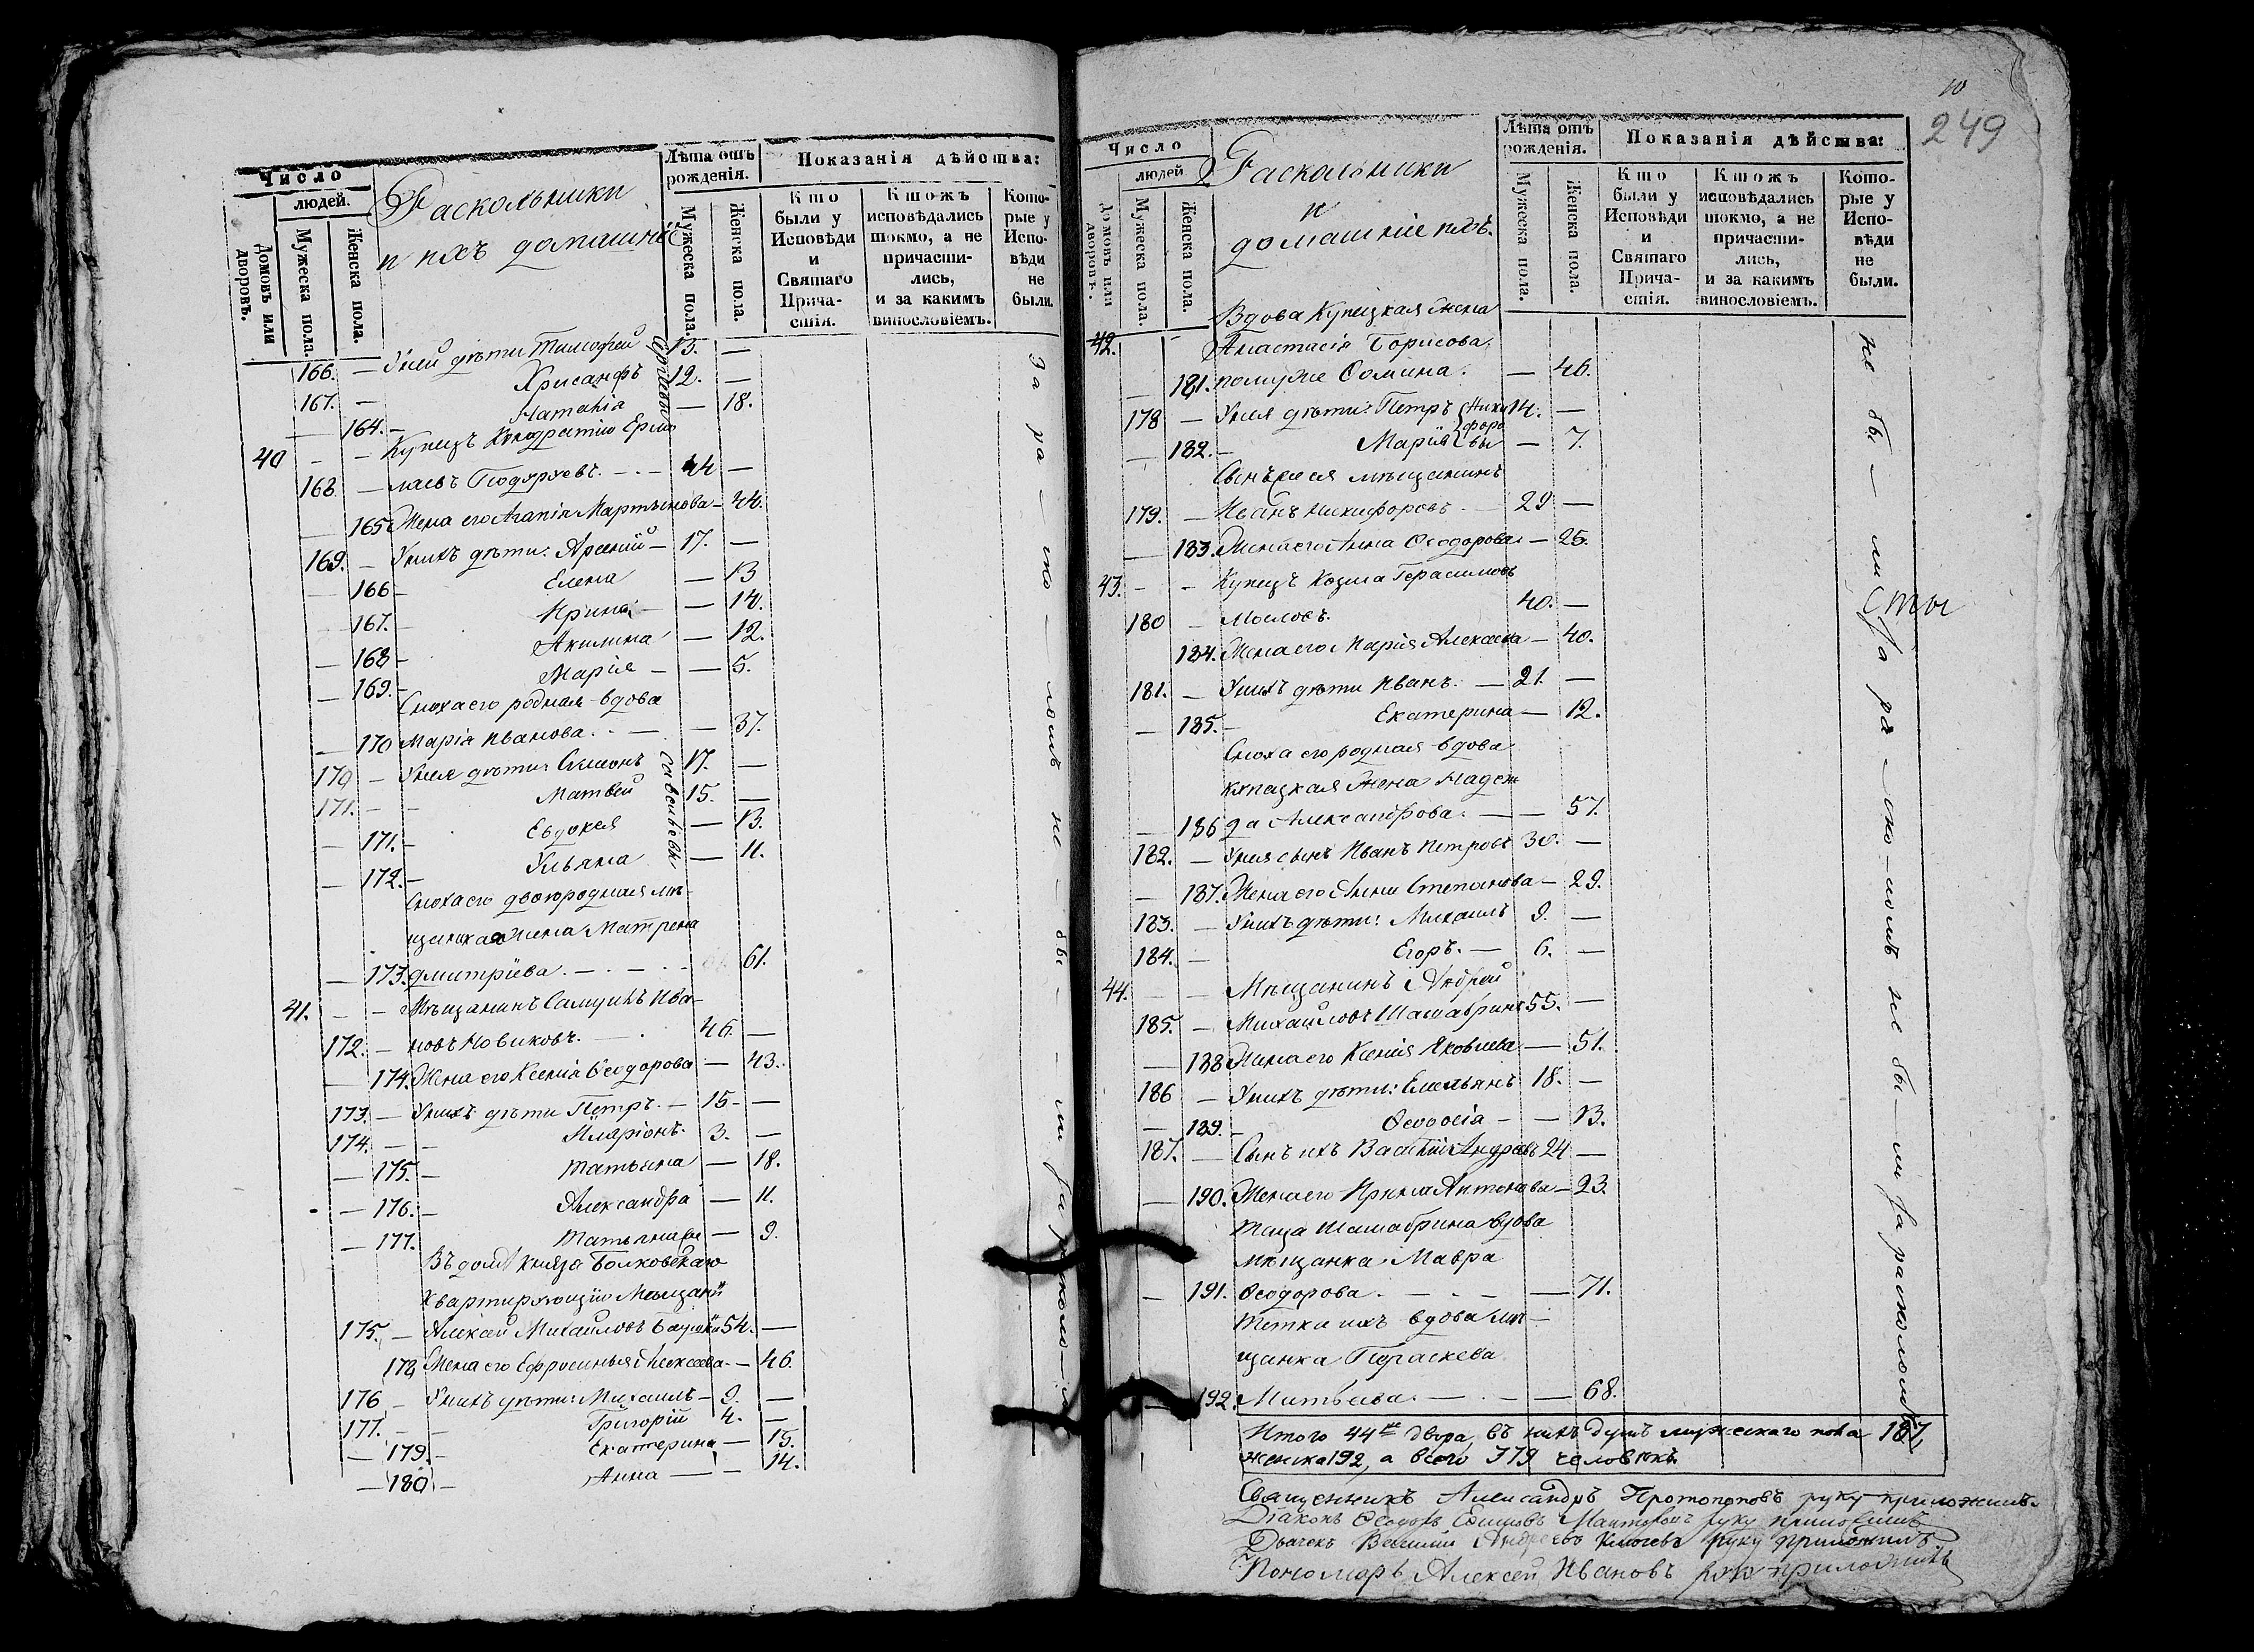 Число
людей.
Домовъ или дворовъ.
Мужеска пола.
Женска пола.
Раскольники
и ихъ домашніе
Лѣта отъ рожденія.
Мужеска пола.
Женска пола.
Показанія дѣйства:
Кто были у Исповѣди и Святаго Причастія.
Ктожъ исповѣдались токмо, а не причастились, и за какимъ винословіемъ.
Которые у Исповѣди не были.
166. — У ней дѣти Тимофей 13. —
167. — Хрисанфъ 12. —
— 164. — Наталія — 18.
40 — — Купецъ Кондратій Ермо
168. — лаевъ 44 —
— 165 Жена его Агапія Мартынова — 44.
169. — У нихъ дѣти: Арсеній — 17. —
— 166 — Елена — 13
— 167. — Ирина — — 14.
— 168 — Акилина — 12.
— 169. — Марія — — 5.
Сноха его родная вдова
— 170 Марія Иванова. — — 37.
170 — У нея дѣти: Симеонъ 17. —
171. — — Матвей 15. —
— 171. — Евдокея — 13.
— 172. — Ульяна — 11.
Савельевы
Сноха его двоюродная мѣ-
щанская жена Матрена
— 173. Дмитріева. — . — . — 61.
41. — — Мѣщанинъ Самуилъ Ива-
172. — новъ Новиковъ. — . 46. —
— 174. Жена его Ксенія Ѳеодорова — 43.
173. — У нихъ дѣти Петръ. — 15 — —
174. — — Иларіонъ. 3. —
— 175. — Татьяна — 18.
— 176. — Александра — 11.
— 177. Татьяна — 9.
Въ домѣ князя Волховскаго
Квартирующій Мѣщанинъ
175. — Алексей Михайловъ 54. —
178 Жена его Ефросинья Алексеева — 46.
176 — У нихъ дѣти: Михаилъ — 9. —
177. — — Григорій 4. —
— 179. — Екатерина — 15.
— 180 — Анна — — 14.
За раско — ломъ не — бы — ли
10
249
Число
людей.
Домовъ или дворовъ.
Мужеска пола.
Женска пола.
Раскольники
и
домашніе ихъ.
Лѣта отъ рожденія.
Мужеска пола.
Женска пола.
Показанія дѣйства:
Кто были у Исповѣди и Святаго Причастія.
Ктожъ исповѣдались токмо, а не причастились, и за какимъ винословіемъ.
Которые у Исповѣди не были.
Вдова Купецкая жена
42. — Анастасія Борисова
— 181. по мужѣ Ѳомина. — 46.
178 — У нея дѣти: Петръ Ники 14. —
— 182. — Марія форовы — 7.
Сынъ ея мѣщанинъ
179. — Иванъ Никифоровъ. — 29 —
— 183. Жена его Анна Ѳеодорова — 25.
43. — — Купецъ Козма Герасимовъ
180 — 40. —
— 184. Жена его Марія Алексеева — 40.
181. — У нихъ дѣти Иванъ. — 21. —
— 185. — Екатерина — 12.
Сноха его родная вдова
купецкая жена Надеж
— 186 да Александрова. — — 57.
182. — У нея сынъ Иванъ Петровъ 30. —
— 187. Жена его Анна Степанова — 29.
183. — У нихъ дѣти: Михаилъ 9. —
184. — Егоръ. — 6. —
44. — — Мѣщанинъ Андрей
185. — Михайловъ Шашабринъ 55. —
— 188 Жена его Ксенія Яковлева — 51.
186 — У нихъ дѣти: Емельянъ 18. —
— 189. — Ѳеодосія — — 13.
187. — Сынъ ихъ Василій Андреевъ 24 —
— 190. Жена его Ирина Антонова — 23.
Теща Шашабрина вдова
мѣщанка Мавра
— 191. Ѳеодорова. — — — 71.
Тетка ихъ вдова мѣ —
щанка Параскева
— 192. Матвеева. — . — — 68.
не бы — ли за ра — ско — ломъ не бы ли за расколомъ
Итого 44ре двора, въ нихъ душъ мужескаго пола 187,
женска 192, а всего 379 человѣкъ
Священникъ Александръ Протопоповъ руку приложилъ.
Діаконъ Ѳеодоръ руку приложилъ
Дьячекъ Василій Андреевъ руку приложилъ
Пономарь Алексей Ивановъ руку приложилъ